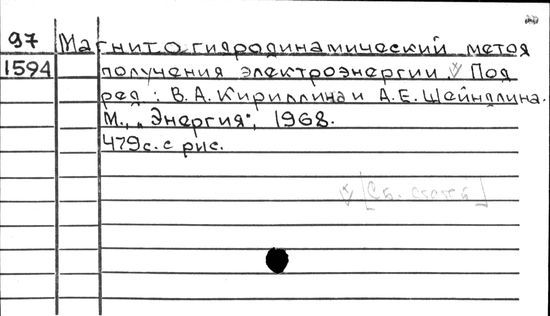 97 Магнитогидродинамический метод
1594 получения электроэнергии √ Под
ред: В.А.Кириллина и А.Е.Шейндлина.
М., „Энергия", 1968.
479с. с рис.
√ [Сб. статей]